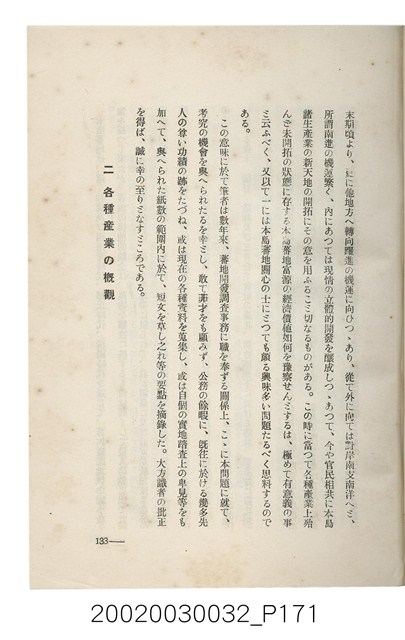 末期頃より、更に他地方へ轉向躍進の機運に向ひつゝあり、從て外に向ては對岸南支南洋へミ、
所謂南進の機運繁く、内にあつては現情の立體的開發を釀成しつゝあつて、今や官民相共に本島
諸生產業の新天地の開拓にその意を用ふるこミ切なるものがある。この時に當つて各種產業上殆
んど未開拓の狀態に存する本島蕃地富源の經濟價値如何を豫察せんミするは、極めて有意義の事
ミ云ふべく、又以て一には本島蕃地關心の士にミつても頗る興味多い問題たるべく思料するので
ある。
この意味に於て筆者は數年來、蕃地開發調査事務に職を奉ずる關係上、こゝに本問題に就て、
考究の機會を與へられたるを幸ミし、敢て菲才をも顧みず、公務の餘暇に、既往に於ける幾多先
人の尊い功績の跡をたづね、或は現在の各種資料を蒐集し、或は自個の實地踏査上の卑見等をも
加へて、與へられた紙數の範圍内に於て、短文を草し之れ等の要點を摘錄した。大方識者の批正
を得ば、誠に幸の至りミなすミころである。
二 各種產業の槪觀
133
20020030032_P171